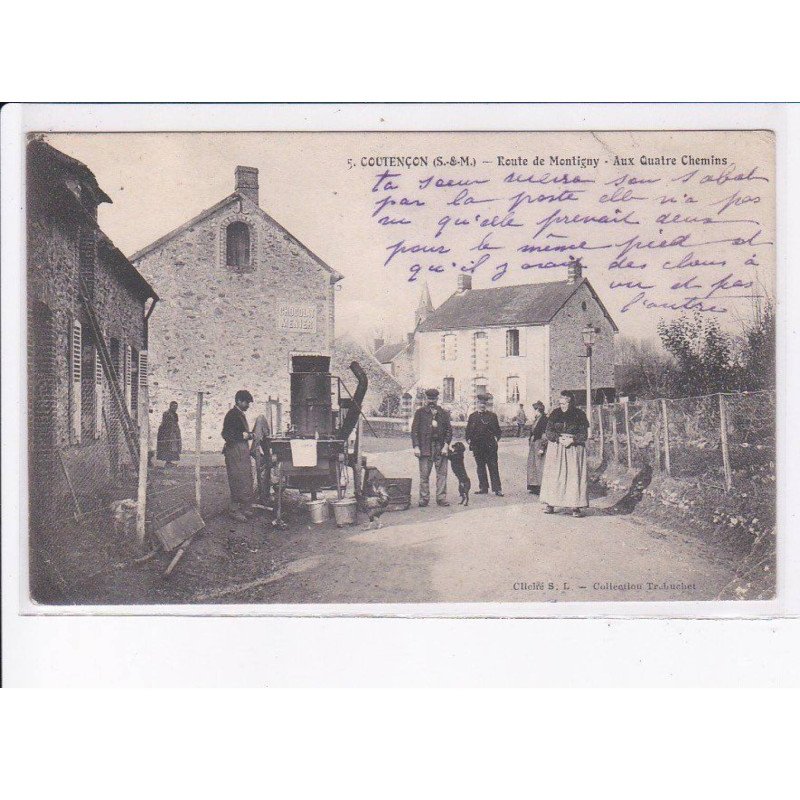 5. COUTENÇON (S.-&-M.) — Route de Montigny - Aux Quatre Chemins
ta soeur son sabot
par la poste elle n'a pas
vu qu'elle prenait deux
pour le même pied et
qu'il y avait des clous à
un et pas
l'autre
CHOCOLAT
MENIER
Cliché S. L. — Collection Trabuchet